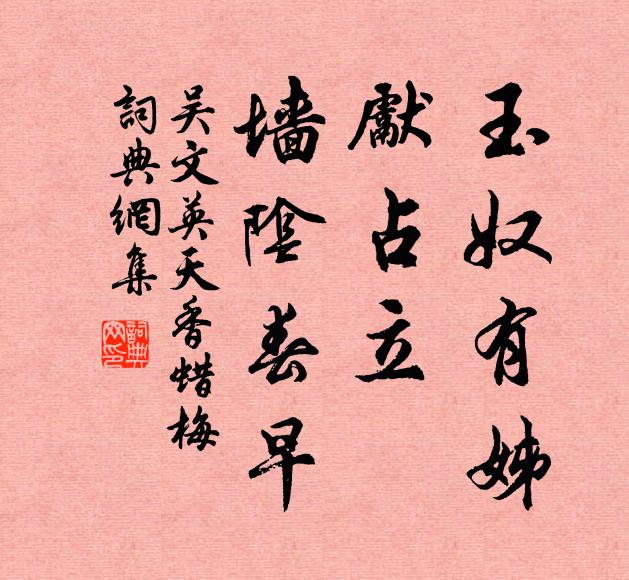 玉奴有姊
獻占立
墙陰春早
吴文英天香蜡梅
詞典網集
詞典网印